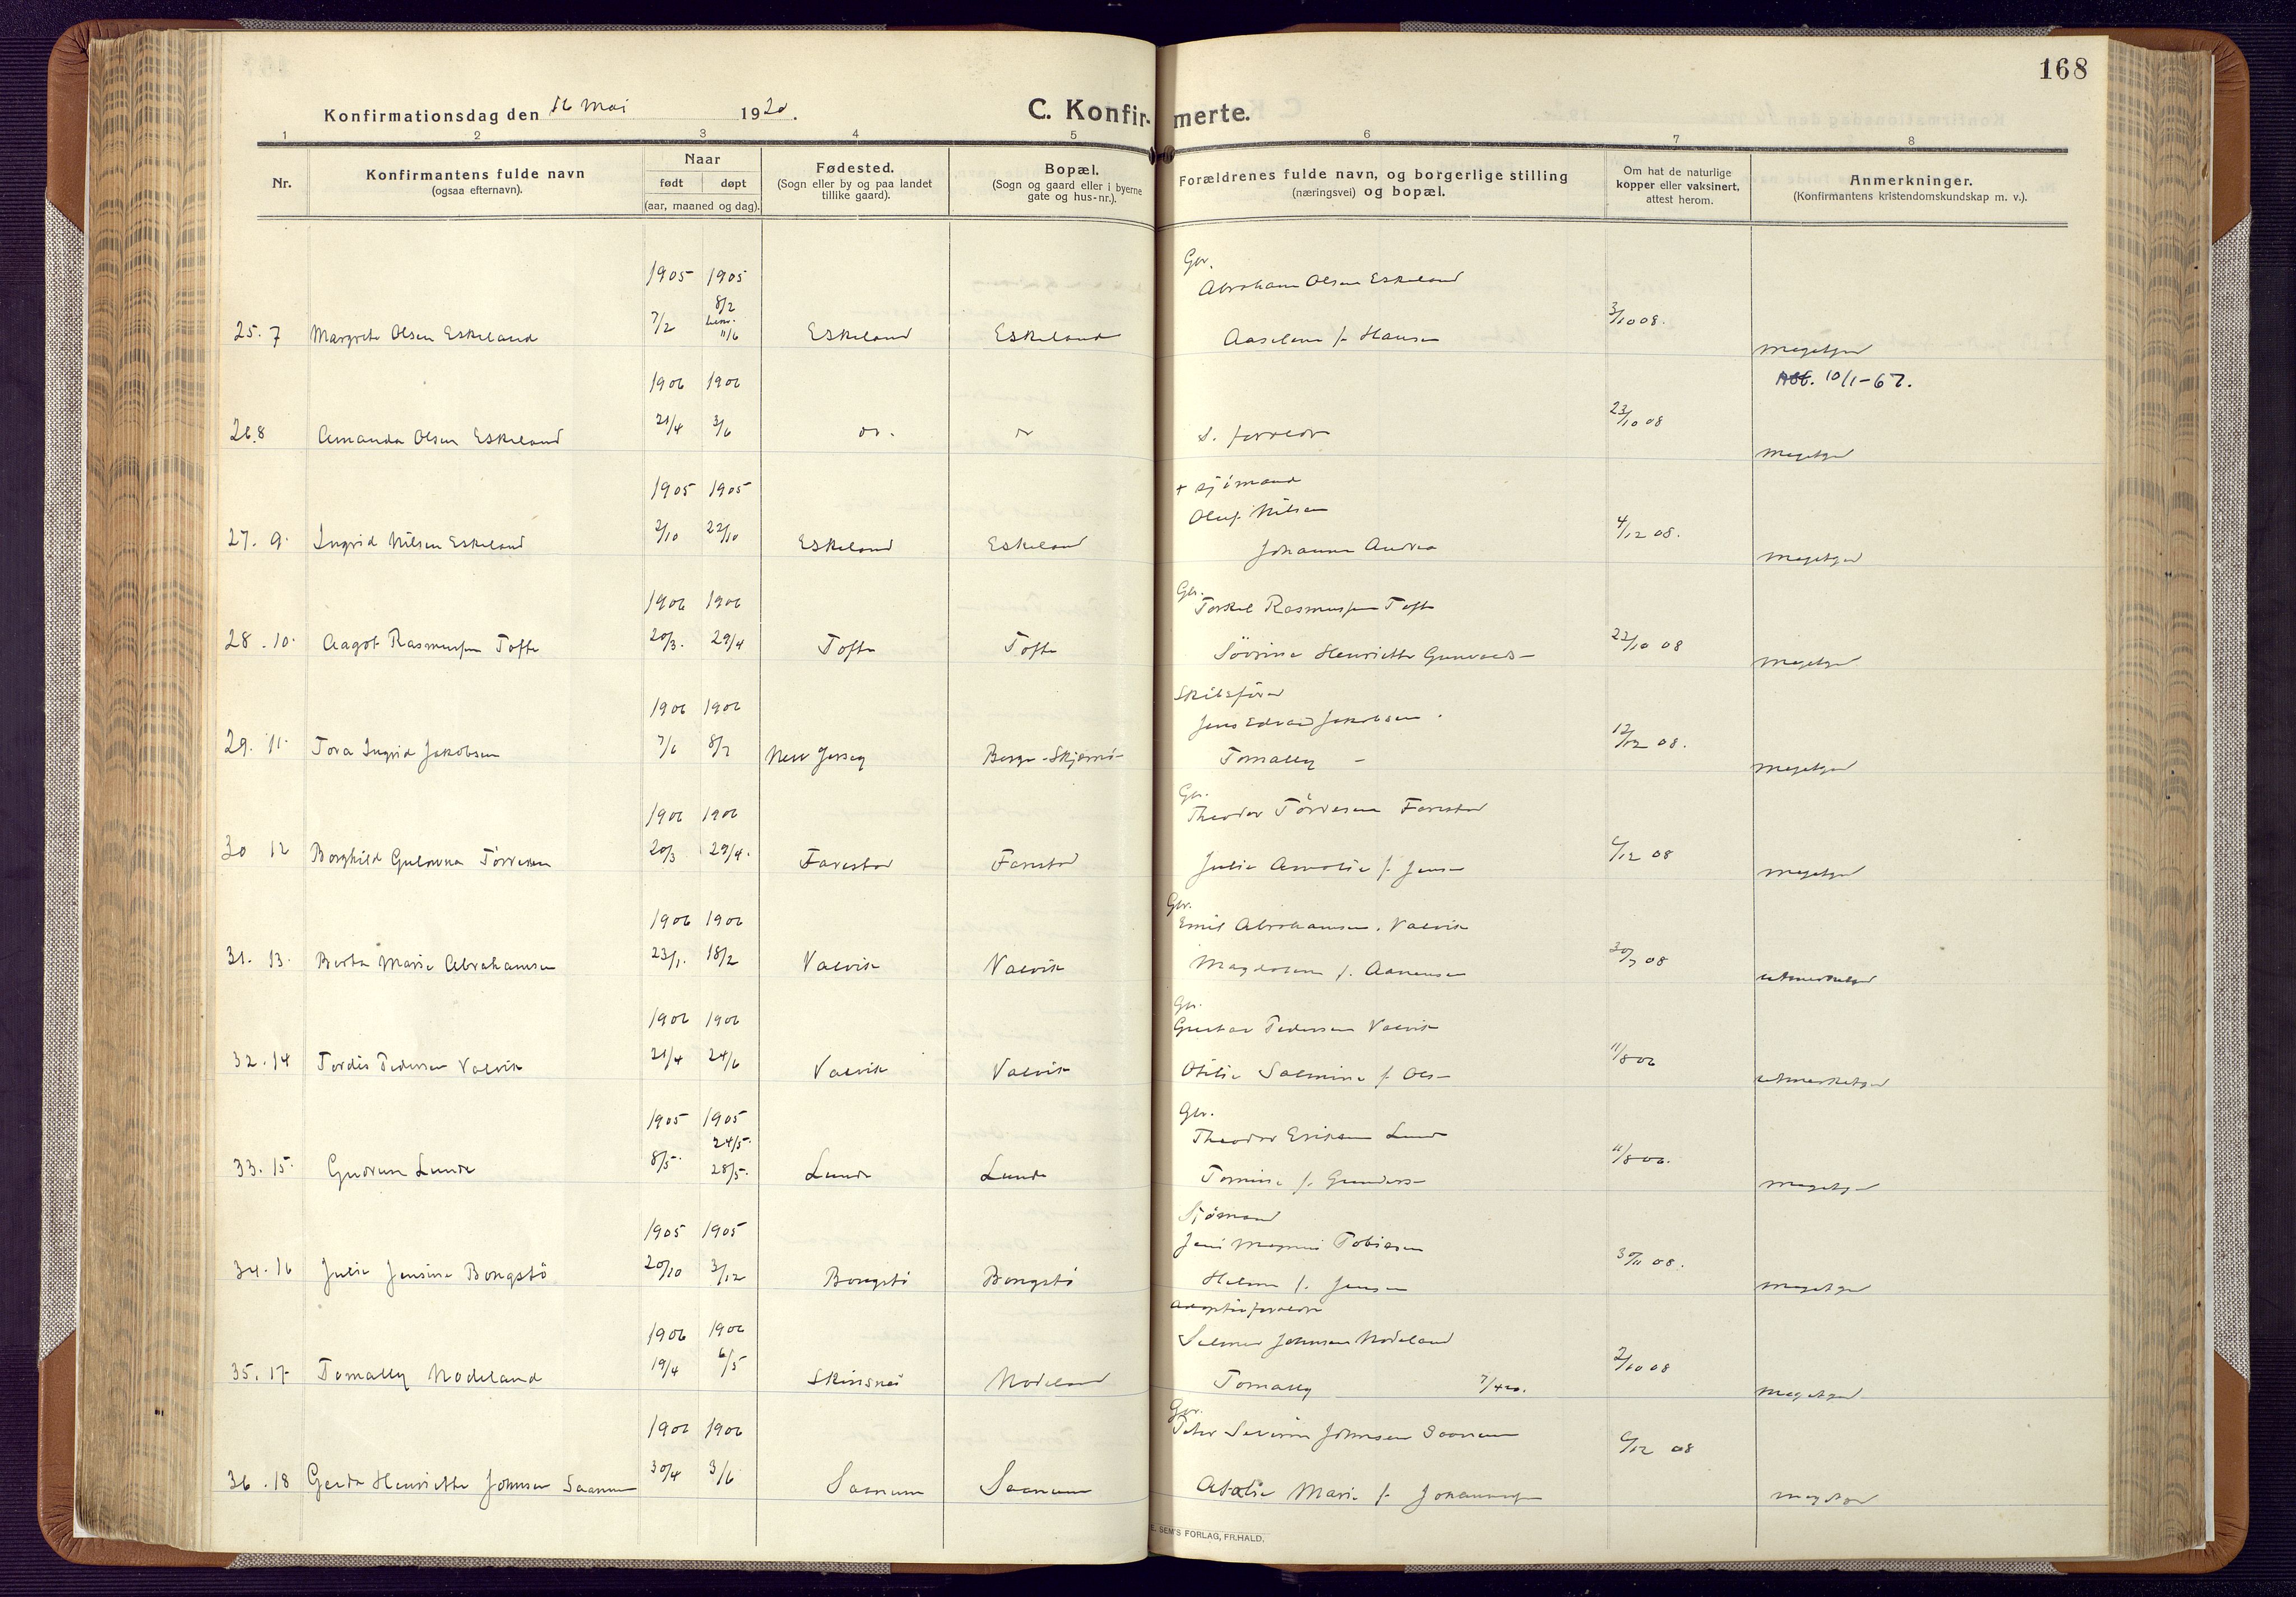 168
Konfirmationsdag den 16 Mai 1920.
C. Konfirmerte.
1 2 3 4 5 6 7 8
Nr.
Konfirmantens fulde navn
(ogsaa efternavn).
Naar
født døpt
(aar, maaned og dag).
Fødested.
(Sogn eller by og paa landet
tillike gaard).
Bopæl.
(Sogn og gaard eller i byerne
gate og hus-nr.).
Forældrenes fulde navn, og borgerlige stilling
(næringsvei) og bopæl.
Om hat de naturlige
kopper eller vaksinert,
attest herom.
Anmerkninger.
(Konfirmantens kristendomskundskap m. v.).
Gbr.
1905 1905 Abraham Olsen Eskeland
8/2
25. 7 Margrete Olsen Eskeland 7/2 11/6 Eskeland Eskeland Aaselene f. Hansen 3/10 08. megetgod
1906 1906 Att. 10/1-67.
26. 8 Amanda Olsen Eskeland 21/4 3/6 do. do s. foreldr 23/10 08 megetgod
1905 1905 + sjömand
Oluf Nilsen
27. 9. Ingrid Nilsen Eskeland 2/10 22/10 Eskeland Eskeland Johanne Andrea 4/12 08. megetgod
Gbr.
1906 1906 Torkel Rasmussen Tofte
28. 10. Aagot Rasmussen Tofte 20/3. 29/4 Tofte Tofte Sövrine Henriette 22/10 08 megetgod
Skibsförer
1906 1906 Jens Edvard Jakobsen
29. 11. Tora Ingrid Jakobsen 7/6 8/7 New Jersey Borge-Skjernö Tomally - 12/12 08. megetgod
Gbr.
1906 1906 Theodor Törresen Farestad
30 12 Borghild Törresen 20/3 29/4. Farestad Farestad Julie Amalie f. Jensen 6/12 08 megetgod
Gbr.
1906 1906 Emil Abrahamsen. Valvik
31. 13. Berta Marie Abrahamsen 23/1. 18/2 Valvik Valvik Magdalene f. Aanensen 30/7 08 utmerketgod
Gbr.
1906 1906 Gustav Pedersen Valvik
32. 14 Tordis Pedersen Valvik 21/4 24/6 Valvik Valvik Otilie Salmine f. Ols- 11/8 06 utmerketgod
Gbr.
1905 1905 Theodor Eriksen Lunde
24/5.
33. 15. Gudrun Lunde 8/5. 28/5. Lunde Lunde Tomine f. Gunders- 11/8 06. megetgod
Sjömand
1905 1905 Jens Magnus Tobiasen
34. 16 Julie Jensine Bongstö 20/10 3/12 Bongstö Bongstö Helene f. Jensen 08. megetgod
Adoptivforeldre
1906 1906 Selmer Johnsen Nodeland
35. 17. Tomally Nodeland 19/4 6/5 Skinsnes Nodeland Tomally 7/4 20. 2/10 08 megetgod
Gbr.
1906 1906 Peter Severin Johnsen Saanum
36. 18 Gerda Henriette Johnsen Saanum 30/4 3/6 Saanum Saanum Atalie Marie f. Johannessen 6/12 08 megetgod
E. SEM'S FORLAG, FR.HALD.